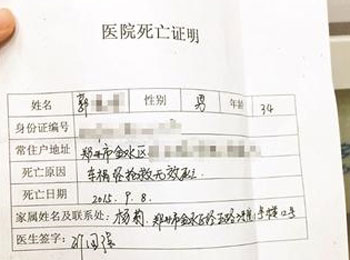 医院死亡证明
姓名 郭 性别 男 年龄 34
身份证编号
常住户地址 郑州市金水区
死亡原因 车祸经抢救无效死亡
死亡日期 2015.9.8.
家属姓名及联系处: 杨菊. 郑州市金水区经五路 号楼12号
医生签字: